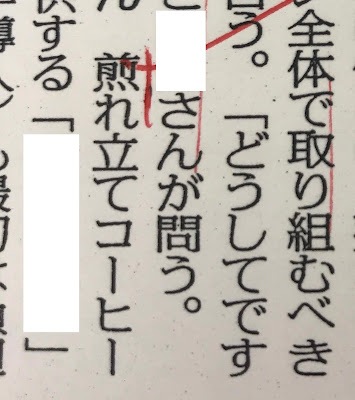 全体で取り組むべき
う。「どうしてです
さんが問う。
ん　煎れ立てコーヒー
供する「　」